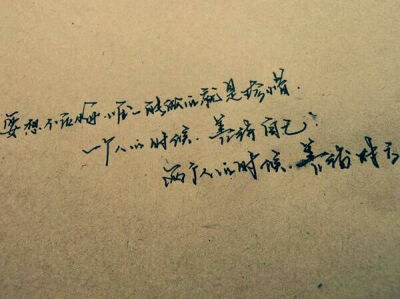 要想不后悔,唯一能做的就是珍惜.
一个人的时候.善待自己.
两个人的时候.善待对方